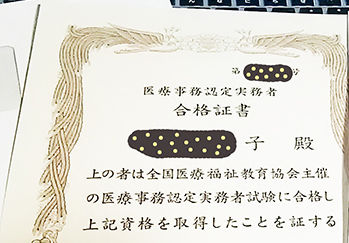 第 号
医療事務認定実務者
合格証書
子 殿
上の者は全国医療福祉教育協会主催
の医療事務認定実務者試験に合格し
上記資格を取得したことを証する